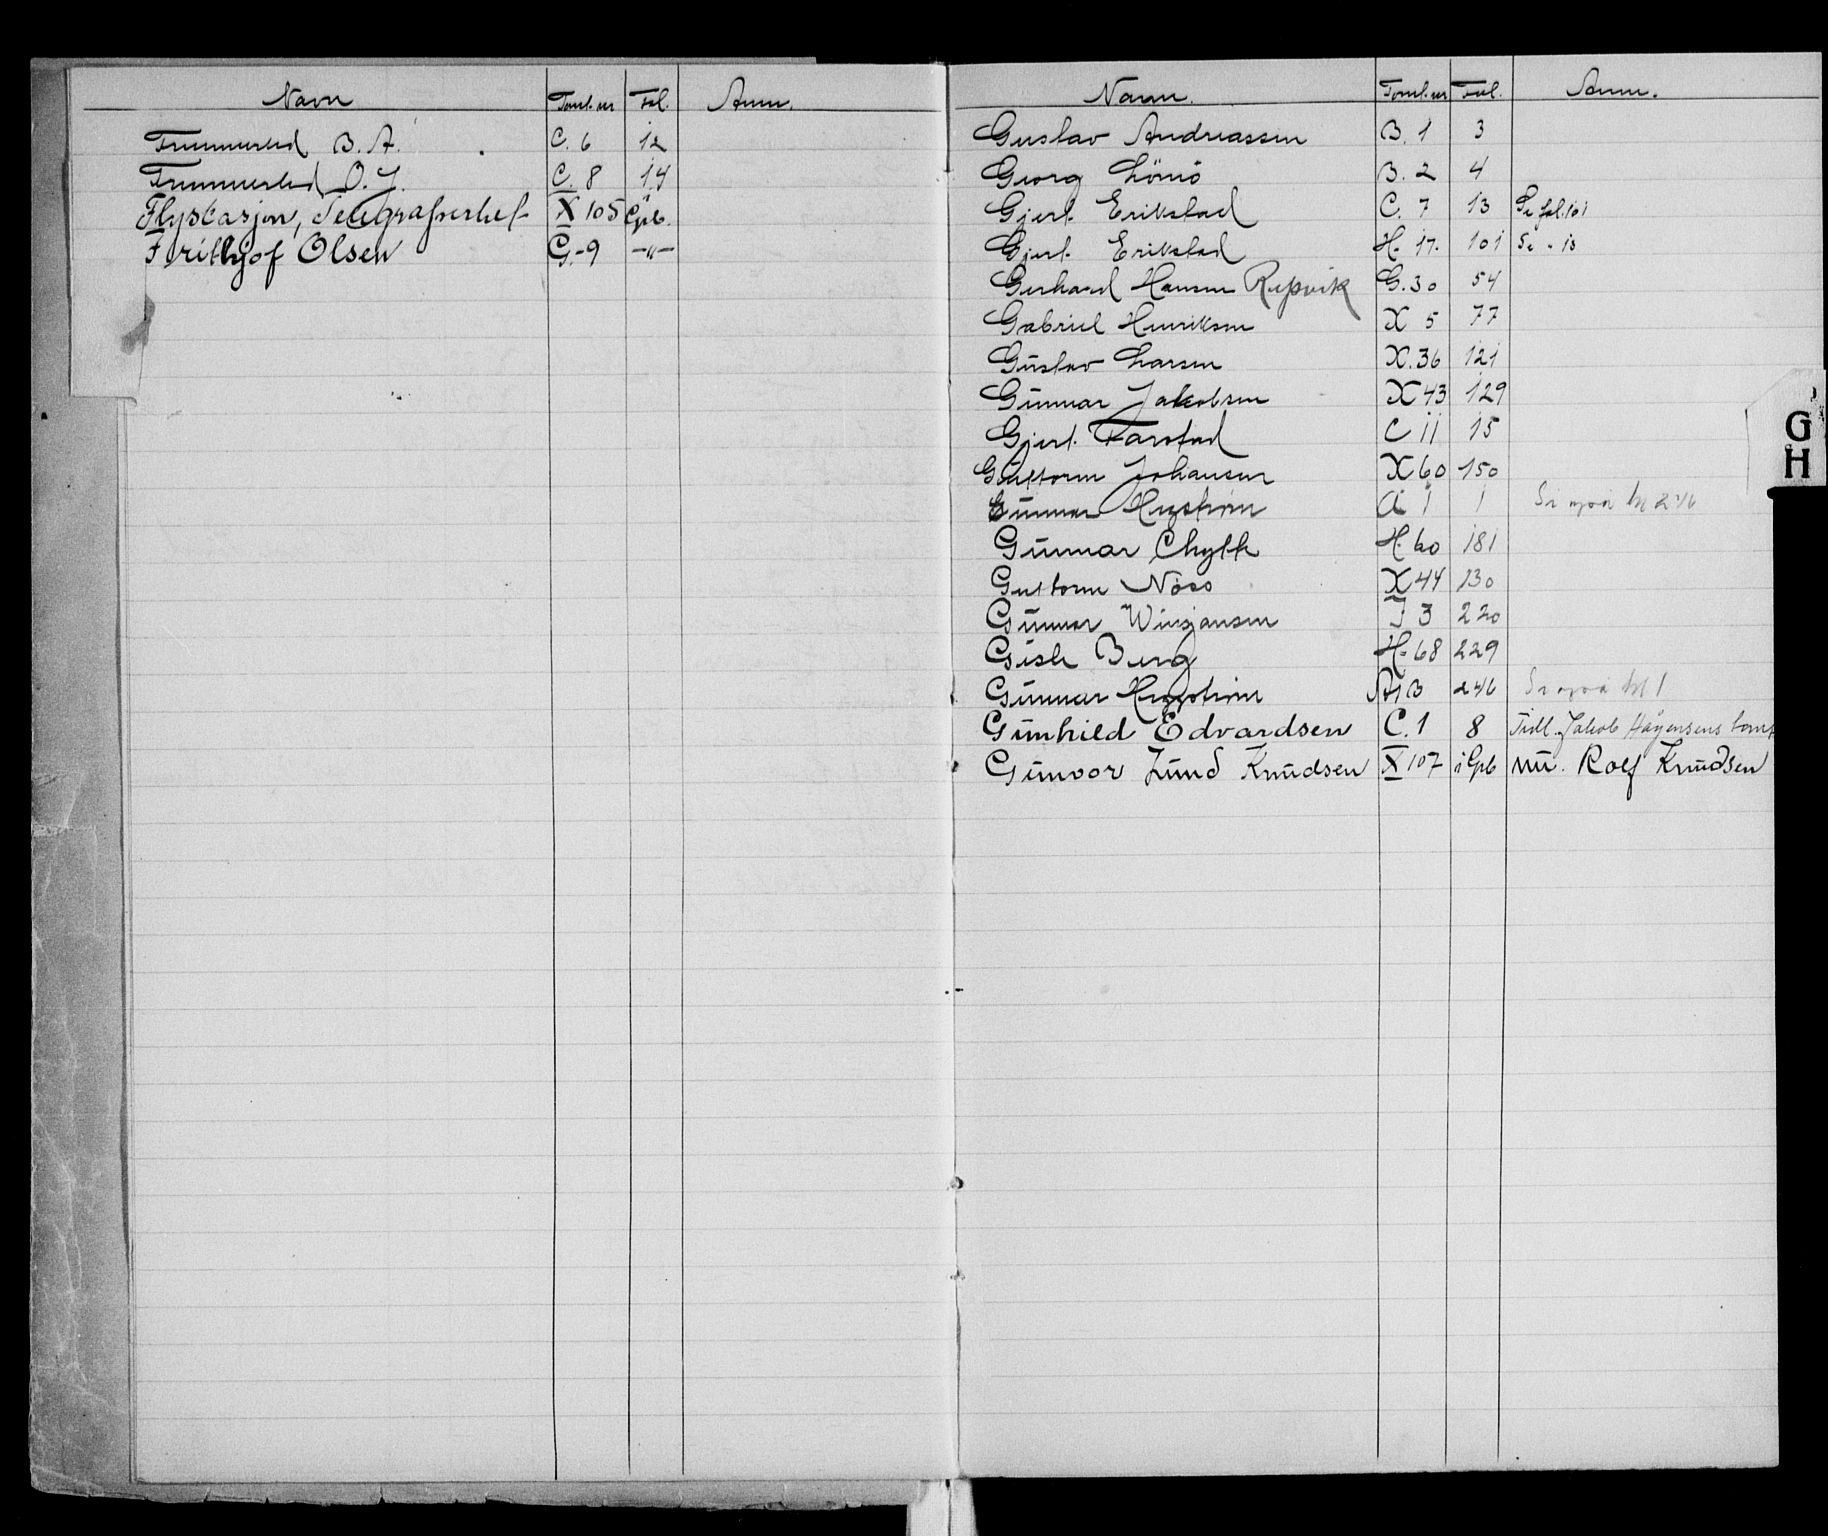 Navn Tomt.nr Fol. Anm.
Trummerled B. A. C. 6 12
Trummerled O. J. C. 8 14
Flystasjon, Telegrafverket X 105 i Gpb.
Frithjof Olsen G.-9 -"-
Navn. Tomt.nr Fol. Anm.
Gustav Andreassen B. 1 3
Georg Lönö B. 2 4
Gjert. Erikstad C. 7 13 Se fol. 101
Gjert. Erikstad H. 17. 101 Se " 13
Gerhard Hansen Repvik G. 30 54
Gabriel Henriksen X 5 77
Gustav Larsen X. 36 121
Gunnar Jakobsen X 43 129
Gjert. Farstad C 11 15
Guttorm Johansen X 60 150
Gunnar A 1 1 Se også bl 246
Gunnar H. 60 181
Guttorm Nöss X 44 130
Gunnar J 3 220
Gisle Berg H. 68 229
Gunnar 246 Se også bl 1
Gunhild Edvardsen C. 1 8 Tidl. Jakob Hågensens tomt
Gunvor Lund Knudsen X 107 i Gpb nu. Rolf Knudsen
G
H